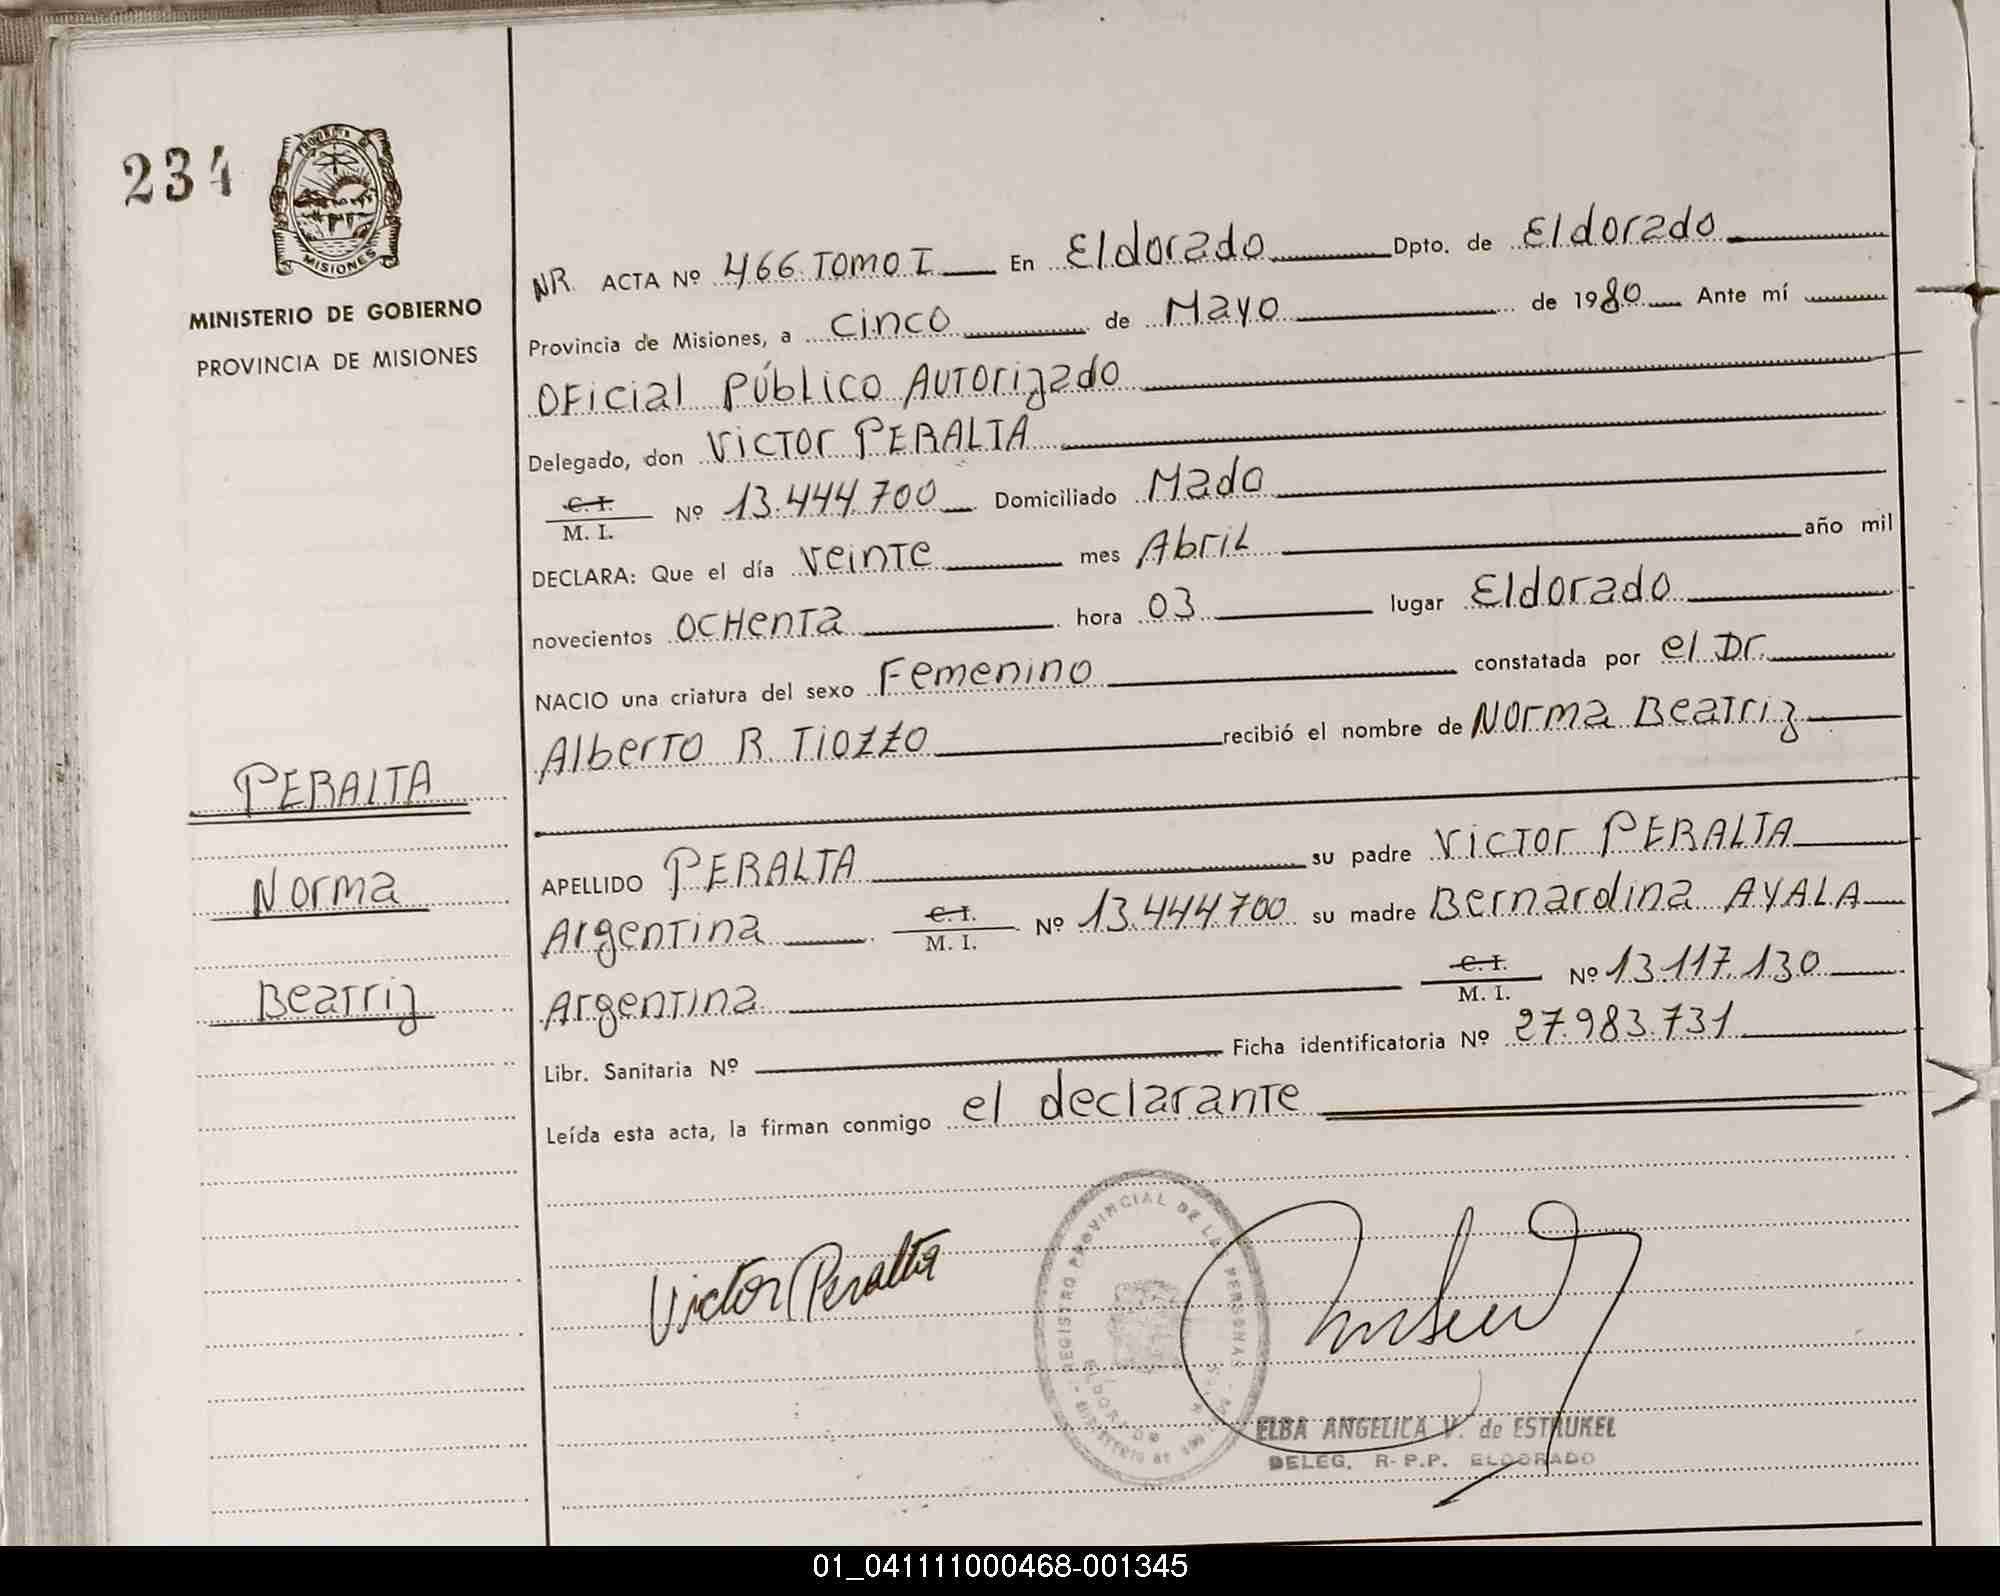 234
PROVINCIA DE
MISIONES
MINISTERIO DE GOBIERNO
PROVINCIA DE MISIONES
PERALTA
Norma
Beatriz
NR. ACTA Nº 466 TOMO I En Eldorado Dpto. de Eldorado
Provincia de Misiones, a cinco de Mayo de 1980 Ante mí
Oficial Público Autorizado
Delegado, don Victor PERALTA
C. I.
M. I. Nº 13.444.700 Domiciliado Mado
DECLARA: Que el día veinte mes Abril año mil
novecientos ochenta hora 03 lugar Eldorado
NACIO una criatura del sexo Femenino constatada por el Dr.
Alberto R. Tiozzo recibió el nombre de Norma Beatriz
APELLIDO PERALTA su padre Victor PERALTA
Argentina C. I. M. I. Nº 13.444.700 su madre Bernardina AYALA
Argentina C. I. M. I. Nº 13.117.130
Libr. Sanitaria Nº Ficha identificatoria Nº 27.983.731
Leída esta acta, la firman conmigo el declarante
Victor Peralta
REGISTRO PROVINCIAL DE LAS PERSONAS
ELDORADO
ELBA ANGELICA V. de ESTRUKEL
DELEG. R-P.P. ELDORADO
01_041111000468-001345